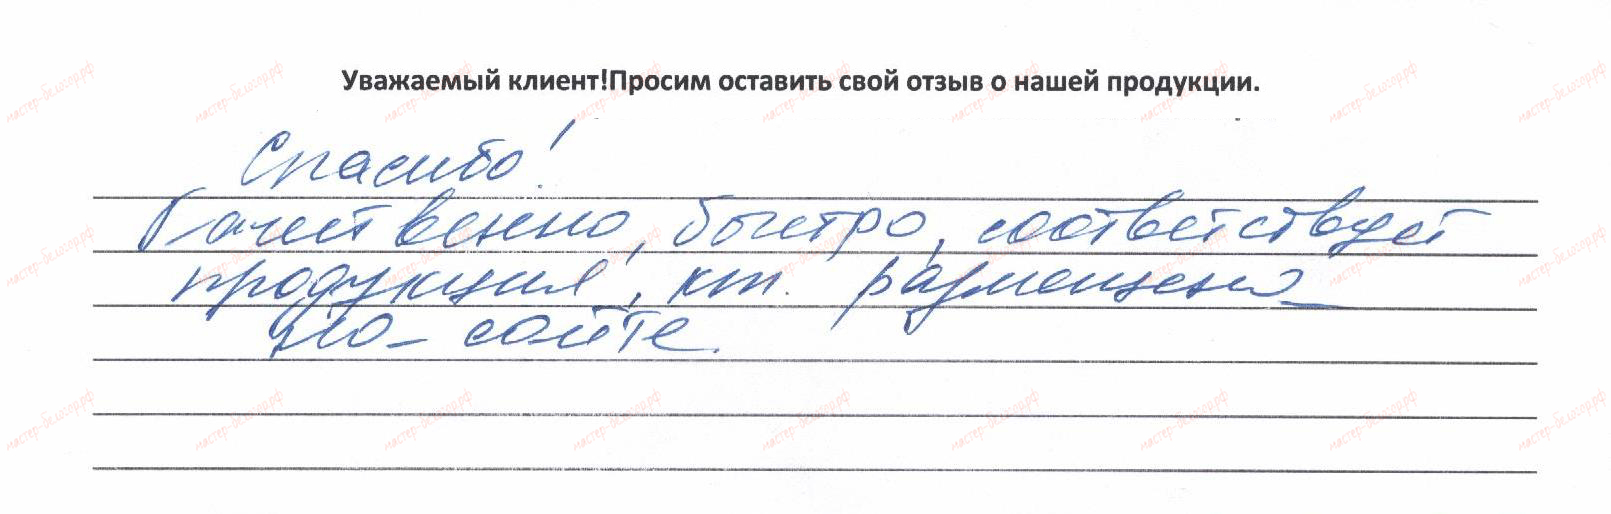 Уважаемый клиент!Просим оставить свой отзыв о нашей продукции.
Спасибо!
Качественно, быстро, соответствует
продукция, кт. размещена
на сайте.
мастер-белогор.рф